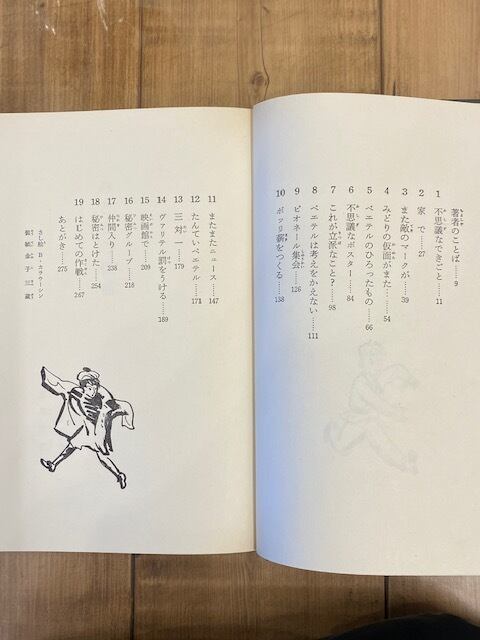 著者のことば……9
1 不思議なできごと……11
2 家で……27
3 また敵のマークが……39
4 みどりの仮面がまた……54
5 ペエテルのひろったもの……66
6 不思議なポスター……84
7 これが立派なこと?……98
8 ペエテルは考えをかえない……111
9 ピオネール集会……126
10 ボッリ薪をつくる……138
11 またまたニュース……147
12 たんていペエテル……171
13 三対一……179
14 ヴァリテル罰をうける……189
15 映画館で……209
16 秘密グループ……218
17 仲間入り……238
18 秘密はとけた……254
19 はじめての作戦……267
あとがき……275
さし絵 B・カリラーシン
装幀 金子三蔵